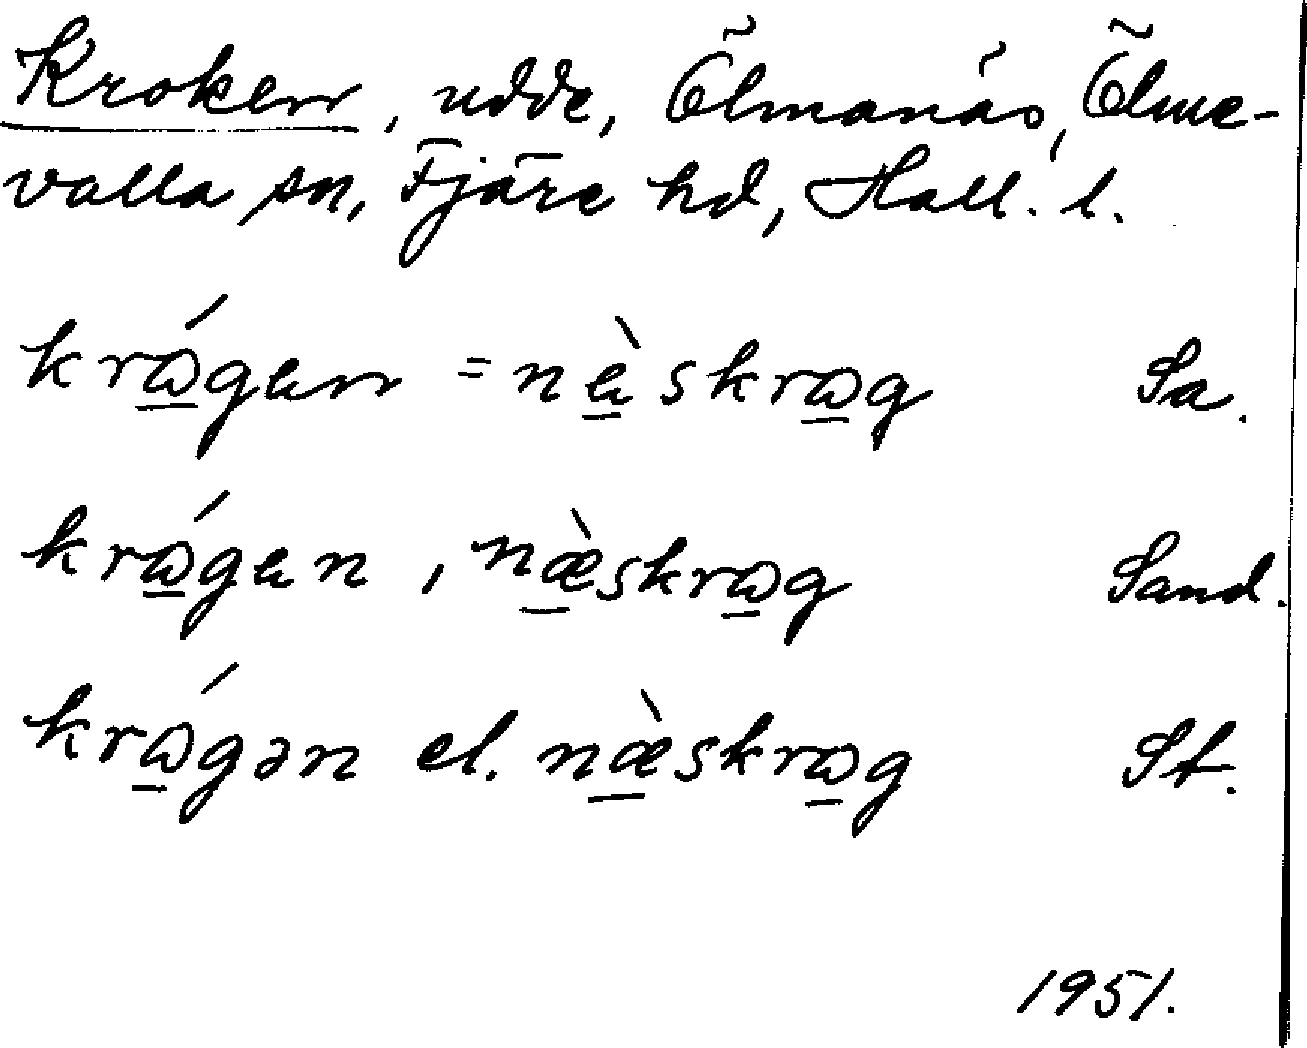 Kroken, udde, Ölmanäs, Ölme-
valla sn, Fjäre hd, Hall. l.
krώ̲gen = nè̲skrω̲g Sa.
krώ̲gen, næ̲̀skrω̲g Sand.
krώ̲gən el. næ̲̀skrω̲g St.
1951.